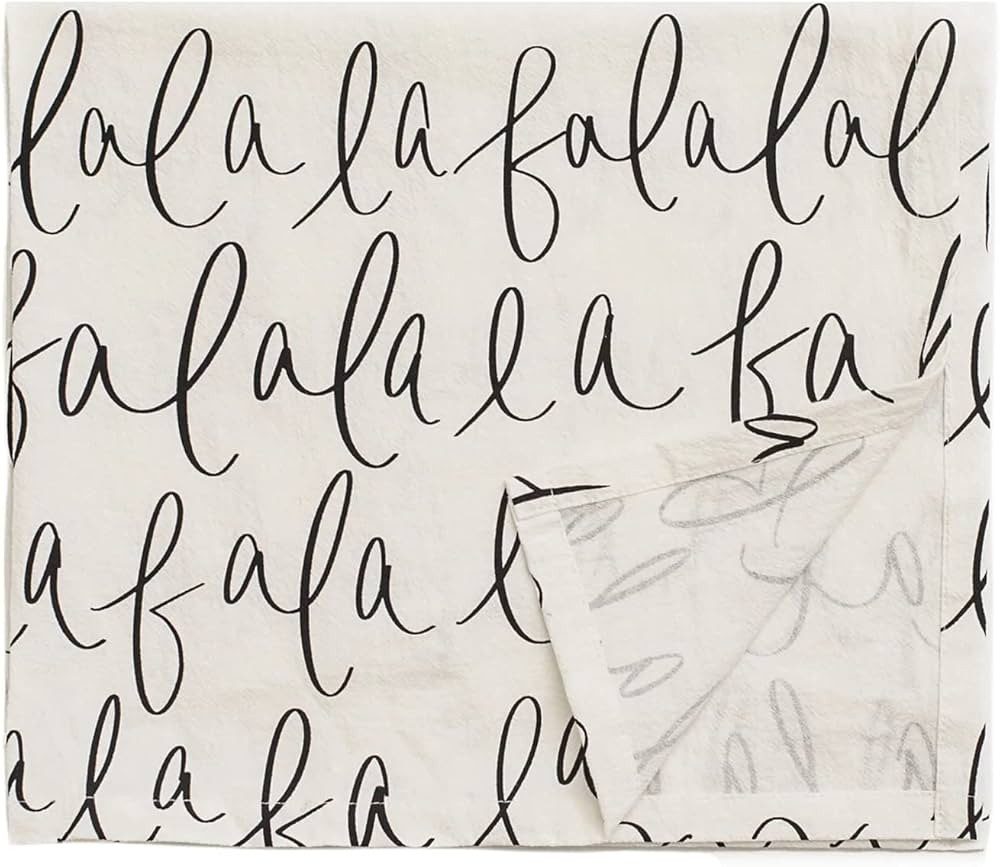 lala la falalal
falala la fa l
a fala l
a la fa la